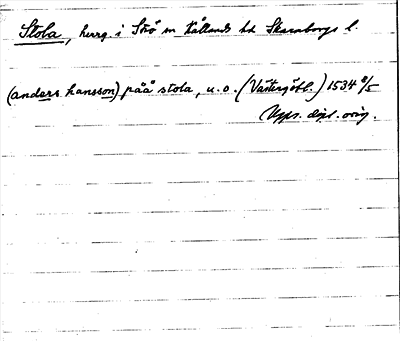 Stola, herrg. i Strö sn Kållands hd Skaraborgs l.
(anders hansson) påå stola, u.o. (Västergötl.) 1534 9/5
Upps. dipl. orig.